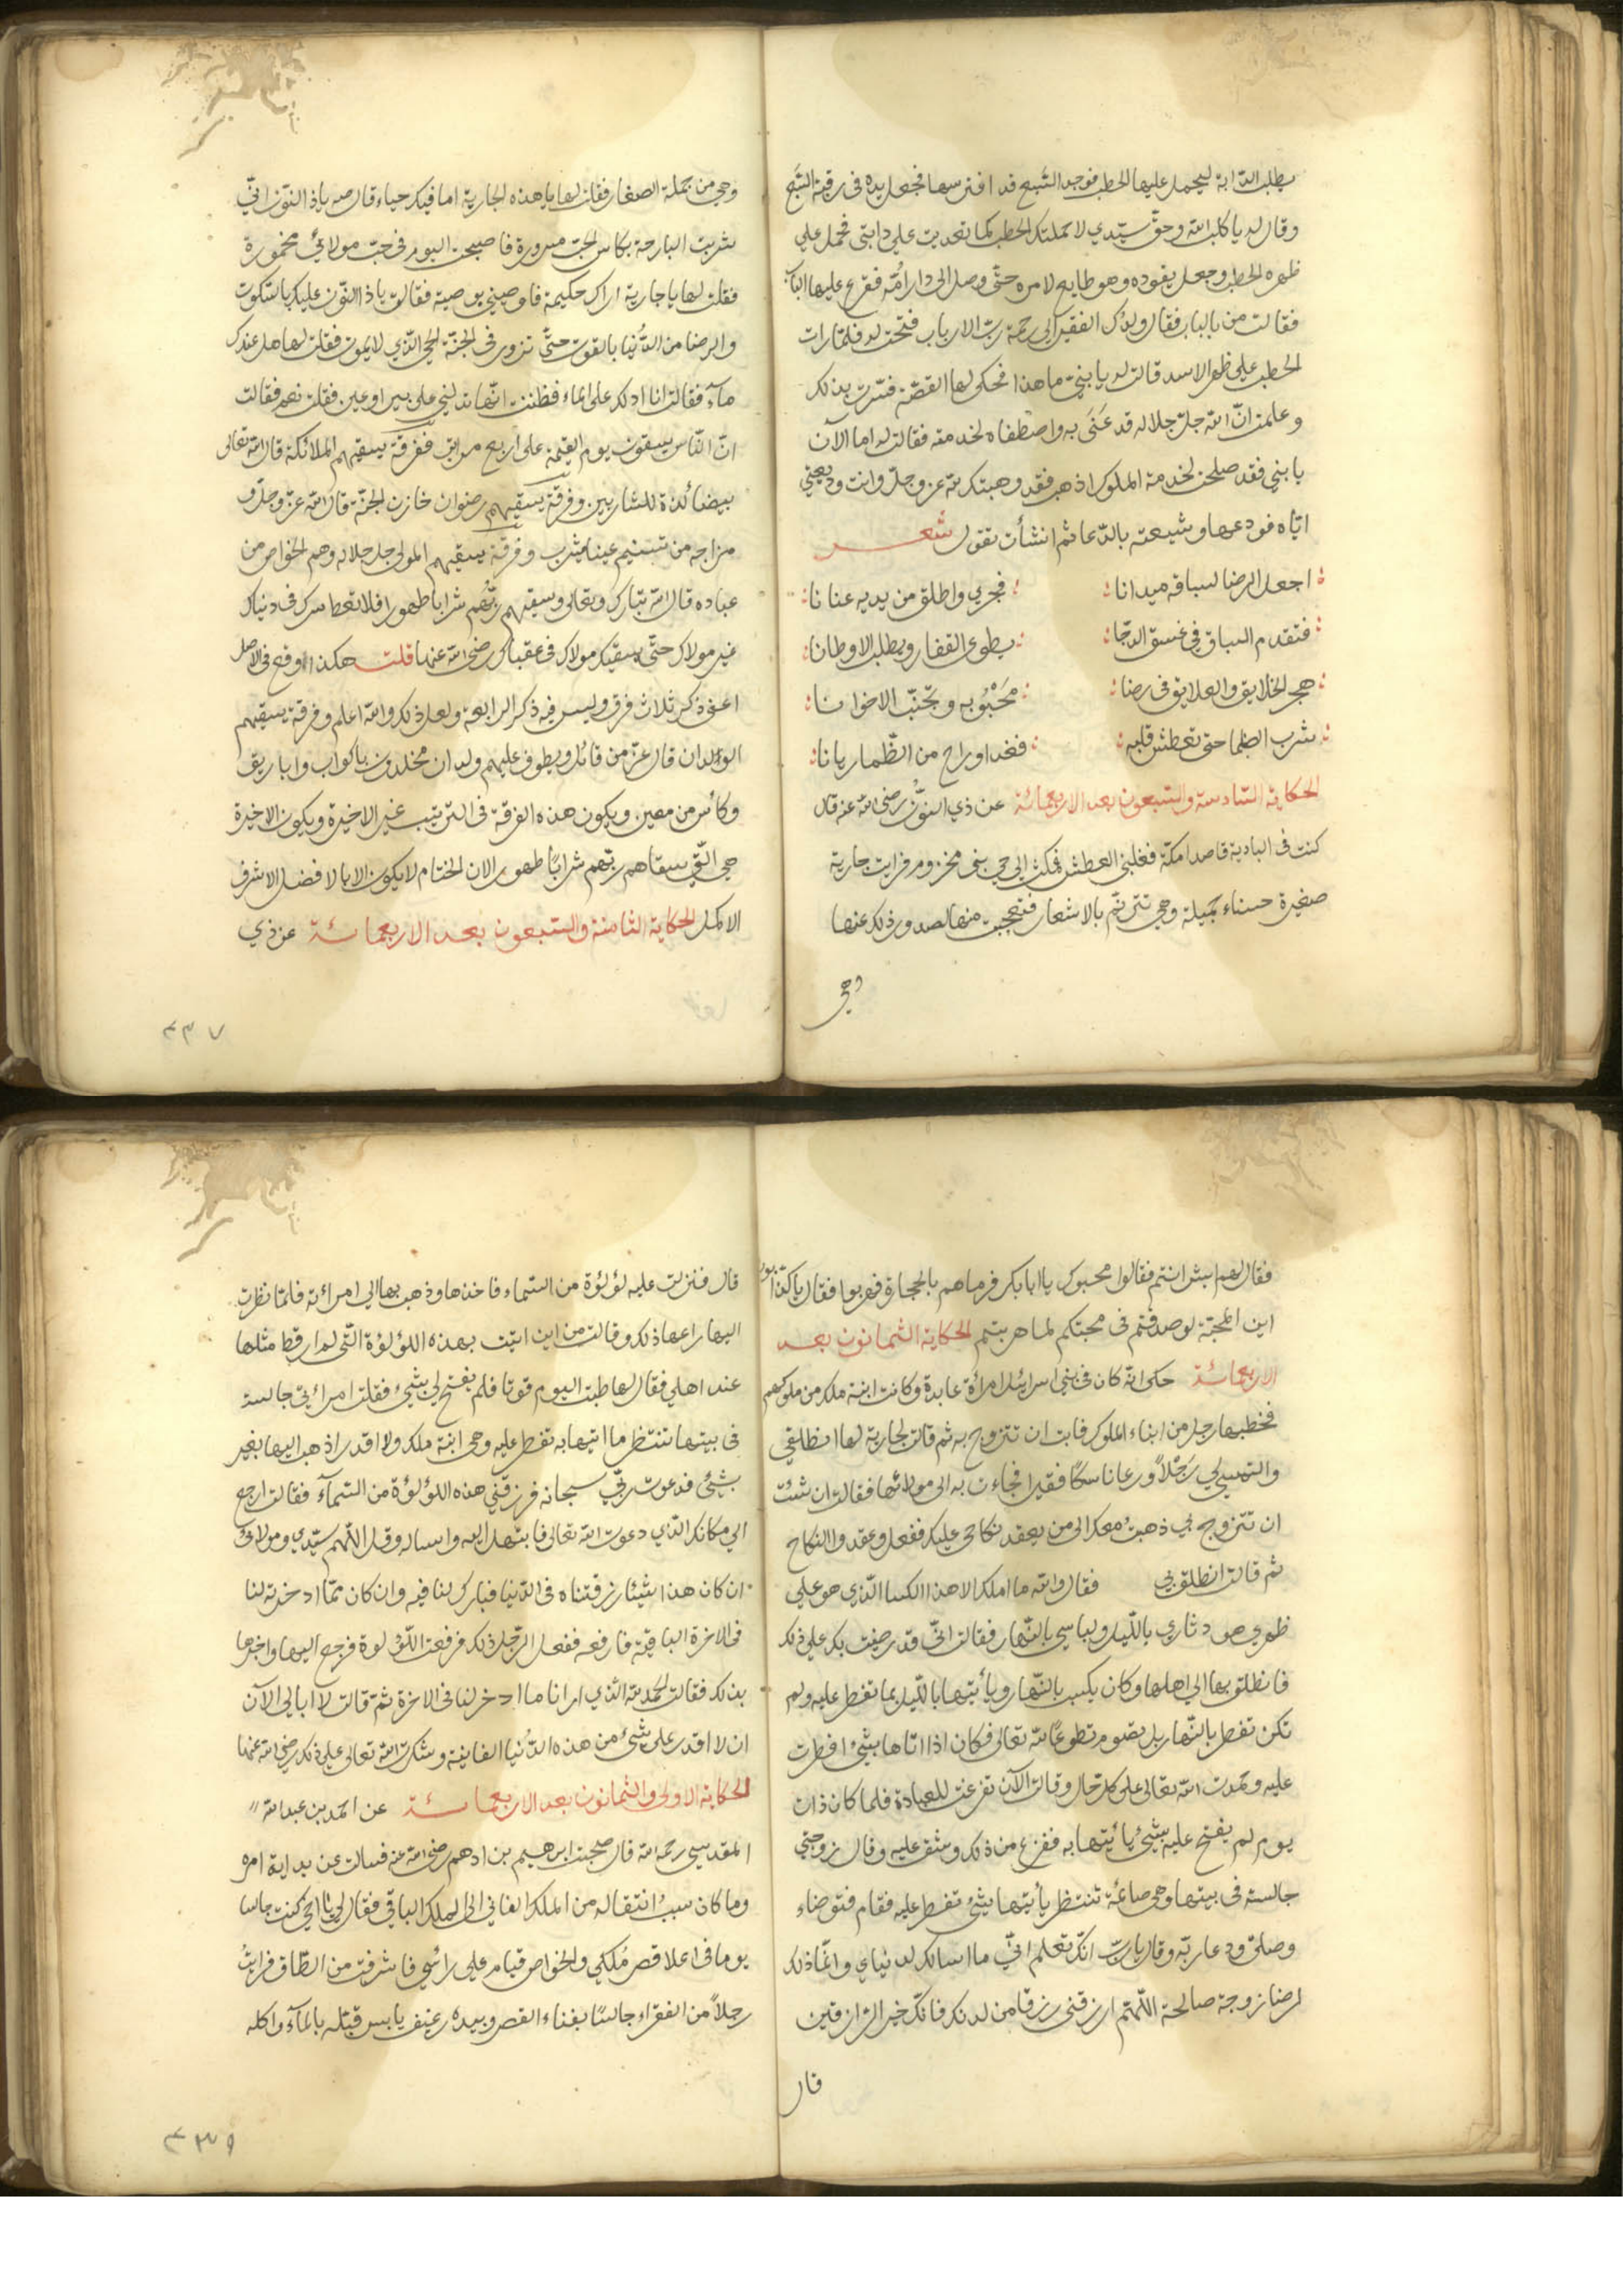 يطلب الدابة ليحمل عليها الحطب فوجد السّبع قد افترسها فجعل يده فى رقبة السّبع
وقال له يا كلب الله وحقّ سيّدي لاحملنك الحطب كما تعديت علي دابتى فحمل علي
ظهره الحطب وجعل يقوده وهو طايع لامره حتّى وصل الى دار امّه فقرع عليها الباب
فقالت من بالباب فقال ولدك الفقير الى رحمة ربّ الارباب فتحت له فلمّا رات
الحطب علي ظهر الاسد قالت له يا بنيّ ما هذا فحكى لها القصّة فسّرت بذلك
وعلمت انّ الله جلّ جلاله قد عَنَى به واصطفاه لخدمته فقالت له اما الآن
يا بني فقد صلحت لخدمة الملوك اذهب فقد وهبتك لله عزّ وجلّ وانت وديعتي
ايّاه فودعها وشيعته بالدّعا ثم انشأت تقول شعر
اجعل الرضا لسباقه ميدانا فجري واطلق من يديه عنانا
فتقدم السباق في غسق الدجّا يطوى القفار ويطلب الاوطانا
هجر الخلايق والعلايق فى رضا مَحَبْوُبه وتجنّب الاخوانا
شرب الظما حتى تعطش قلبه فغدا وراح من الظّما ريانا
الحكاية السّادسة والسّبعون بعد الاربعمائة عن ذي النّون رضى الله عنه قال
كنت فى البادية قاصدا مكّة فغلبنى العطش فملت الى حي بنى مخزوم فرايت جارية
صغيرة حسناء جميلة وهي تترنّم بالاشعار فتعجبت منها لصدور ذلك عنها
وهي
وهي من جملة الصغار فقلت لها يا هذه الجارية اما فيك حياء قال مه يا ذا النّون انّي
شربت البارحة بكاس الحبّ مسرورة فاصبحت اليوم فى حبّ مولاىٔ مخمورة
فقلت لها يا جارية اراك حكيمة فاوصيني بوصية فقالت يا ذا النّون عليك بالسّكوت
والرضا من الدُّنيا بالقوت حتّى تزورى فى الجنّة الحيّ الّذي لا يموت فقلت لها هل عندك
مآء فقالت انا ادلك على الماء فظننت انّها تدلني على بير او عين فقلت نعم فقالت
انّ النّاس يسقون يوم القيمة على اربع مراتب ففرقة يسقيهم الملائكة قال الله تعالى
بيضا لذة للشّاربين وفرقة يسقيهم رضوان خازن الجنّة قال الله عزّ وجلّ و
مزاجه من تسنيم عينا يشرب وفرقة يسقيهم المولى جل جلاله وهم الخواص من
عباده قال الله تبارك وتعالى وسقيهم ربّهم شرابا طهورا فلا تعط سرك فى دنياك
غير مولاك حتّى يسقيك مولاك فى عقباك رضى الله عنها قلت هكذا وقع فى الاصل
اعنى ذكر ثلاث فرق وليس فيه ذكر الرابعة ولعل ذلك والله اعلم وفرقة يسقيهم
الولدان قال عزّ من قائل ويطوف عليهم ولدان مخلدون باكواب واباريق
وكأس من معين ويكون هذه الفرقة فى الترتيب غير الاخيرة ويكون الاخيرة
هي الّتي سقاهم ربّهم شرابًا طهورا لان الختام لا يكون الا بالافضل الاشرف
الاكمل الحكاية الثامنة والسّبعون بعد الاربعمائة عن ذي
٤٣٧
فقال لهم ايش انتم فقالوا محبوك يا ابا بكر فرماهم بالحجارة فهربوا فقال يا كذّابون
اين المحبّة لو صدقتم فى محبتكم لما هربتم الحكاية الثمانون بعد
الاربعمائة حكى انّه كان فى بنى اسرائيل امرأة عابدة وكانت ابنة ملك من ملوكهم
فخطبها رجل من ابناء الملوك فابت ان تتزوج به ثم قالت لجارية لها انطلقي
والتمسي لي رَجُلاً ورعا ناسكا فقيرا فجاءت به الى مولاتها فقالت ان شئت
ان تتزوج بي ذهبتُ معك الى من يعقد نكاحى عليك ففعل وعقدوا النكاح
ثم قالت انطلق بي فقال والله ما املك الا هذا الكسا الّذي هو علي
ظهري هو دثاري بالّليل ولباسي بالنّهار فقالت انّي قد رضيت بك على ذلك
فانطلق بها الى اهلها وكان يكسب بالنّهار ويأتيها بالّليل بما تفطر عليه ولم
تكن تفطر بالنّهار بل تصوم تطوعًا لله تعالى فكان اذا اتاها بشئ افطرت
عليه وحمدت الله تعالى على كلّ حال وقالت الآن تفرغت للعبادة فلما كان ذات
يوم لم يفتح عليه بشئ يأتيها به ففزع من ذلك وشق عليه وقال زوجتي
جالسة فى بيتها وهى صائمة تنتظر يأتيها بشئ تفطر عليه فقام فتوضاء
وصلّى ودعا ربّه وقال يا ربّ انّك تعلم انّي ما اسالك لدنياي وانّما ذلك
لرضا زوجة صالحة اللّهمّ ارزقنى رزقا من لدنك فانّك خير الرّازقين
قال
قال فنزلت عليه لؤلؤة من السّماء فاخذها وذهب بها الى امرأته فلمّا نظرت
اليها راعها ذلك وقالت من اين اتيت بهذه اللؤلؤة الّتى لم ار قط مثلها
عند اهلي فقال لها طلبت اليوم قوتا فلم يفتح لي بشئ فقلت امراتي جالسة
فى بيتها تنتظر ما آتيها به تفطر عليه وهى ابنة ملك ولا اقدر اذهب اليها بغير
بشئ فدعوت ربّي سبحانه فرزقني هذه اللؤلؤة من السّمآء فقالت ارجع
الي مكانك الّذي دعوت الله تعالى فابتهل اليه واساله وقل اللّهم سيّدي ومولاي
ان كان هذا شيئا رزقتناه فى الدّنيا فبارك لنا فيه وان كان ممّا ادخرته لنا
فى الاخرة الباقية فارفعه ففعل الرّجل ذلك فرفعت اللّؤلوة فرجع اليها واخبرها
بذلك فقالت الحمد لله الّذي ارانا ما ادخر لنا فى الاخرة ثمّ قالت لا ابالي الآن
ان لا اقدر على شئ من هذه الدُّنيا الفانية وشكرت الله تعالى على ذلك رضى الله عنها
الحكاية الاولى والثمانون بعد الاربعمائة عن احمد بن عبد الله
المقدسي رحمه الله قال صحبت ابرهيم بن ادهم رضى الله عنه فسالت عن بداية امره
وما كان سببُ انتقاله من الملك الفاني الى الملك الباقي فقال لي يا اخي كنت جالسا
يوما فى اعلا قصر مُلكي والخواص قيام على رأسي فاشرفت من الطّاق فرايتُ
رجلاً من الفقراء جالسًا بفناء القصر وبيده رغيف يابس فبّله بالمآء واكله
٤٣٩